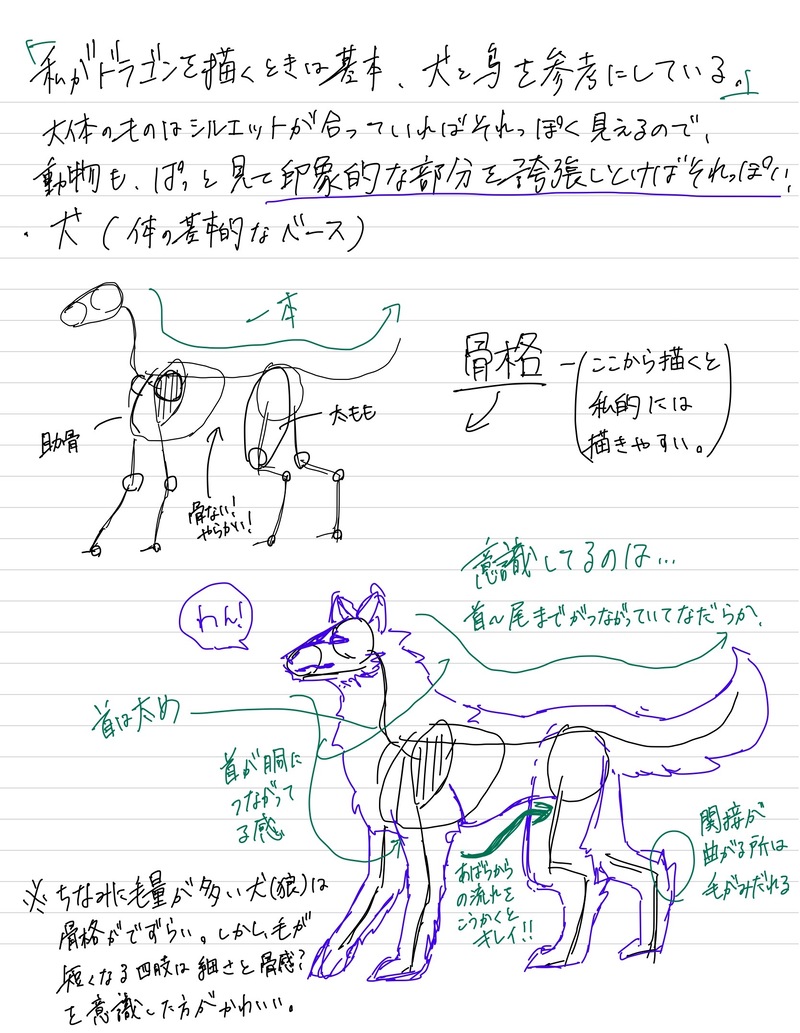 「私がドラゴンを描くときは基本、犬と鳥を参考にしている。」
大体のものはシルエットが合っていればそれっぽく見えるので、
動物も、ぱっと見て印象的な部分を誇張しとけばそれっぽい!
・犬(体の基本的なベース)
一本
骨格
ここから描くと
私的には
描きやすい。
肋骨
太もも
骨ない!
やらかい!
意識してるのは…
首〜尾までがつながっていてなだらか。
わん!
首は太め
首が胴に
つながって
る感
あばらから
の流れを
こうかくと
キレイ!!
関接が
曲がる所は
毛がみだれる
※ちなみに毛量が多い犬(狼)は
骨格がでずらい。しかし、毛が
短くなる四肢は細さと骨感?
を意識した方がかわいい。